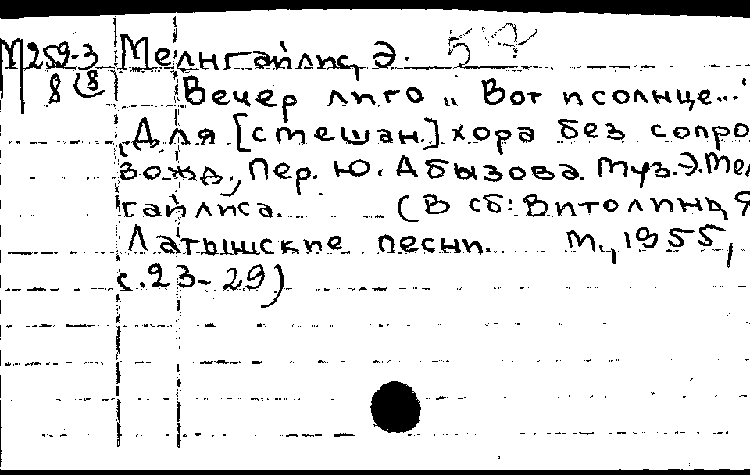 М 259-3 Мелнгайлис, Э. 57
8(8 Вечер лиго „Вот и солнце..."
Для [смешан.] хора без сопро
вожд., пер. Ю. Абызова. Муз. Э. Мел
гайлиса. (В сб: Витолинь, Я
Латышские песни. М., 1955,
с. 23-29)